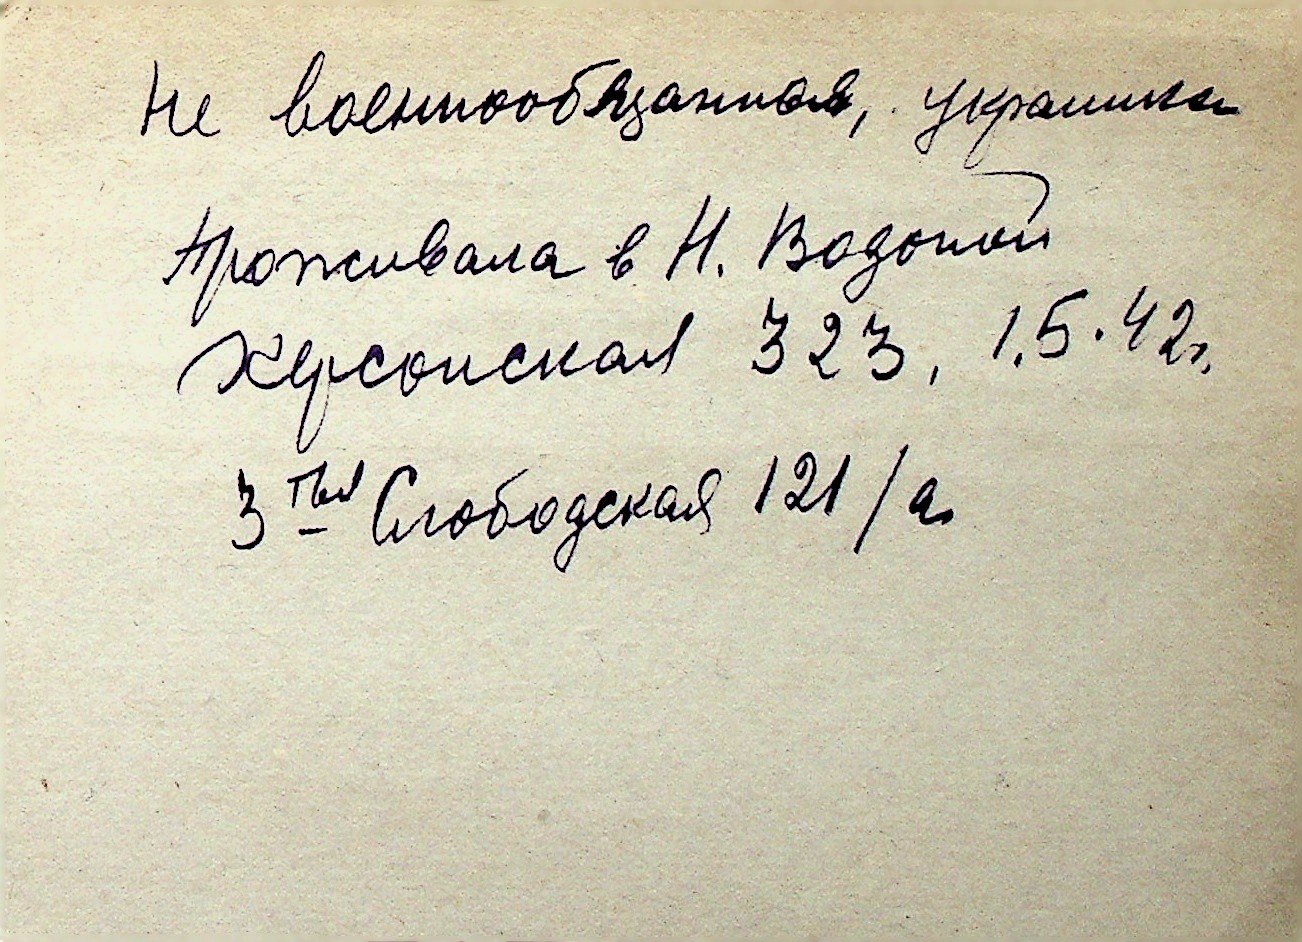 Не военнообязанная, украинка
Проживала в Н. Водопой
Херсонская 323, 1.5.42г.
3тья Слободская 121/а.